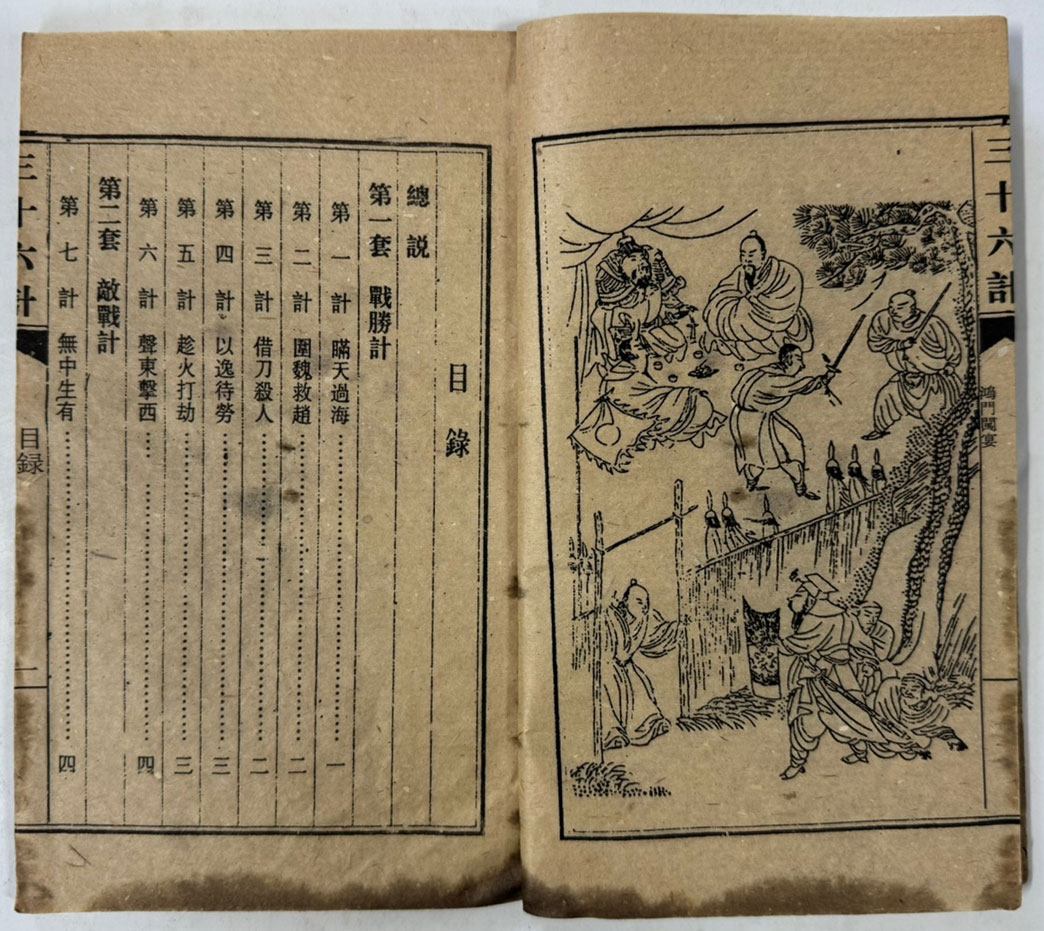 三十六計
鴻門闖宴
目錄
總説
第一套 戰勝計
第一計 瞞天過海……………………一
第二計 圍魏救趙……………………二
第三計 借刀殺人……………………二
第四計 以逸待勞……………………三
第五計 趁火打劫……………………三
第六計 聲東擊西……………………四
第二套 敵戰計
第七計 無中生有……………………四
三十六計
目録
一